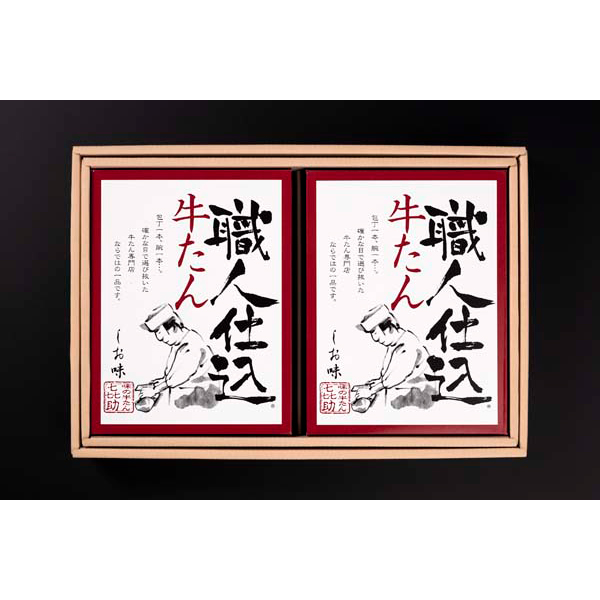 職人仕込
牛たん
包丁一本、腕一本…。
確かな目で選び抜いた
牛たん専門店
ならではの一品です。
しお味
味の牛たん
㐂助
職人仕込
牛たん
包丁一本、腕一本…。
確かな目で選び抜いた
牛たん専門店
ならではの一品です。
しお味
味の牛たん
㐂助